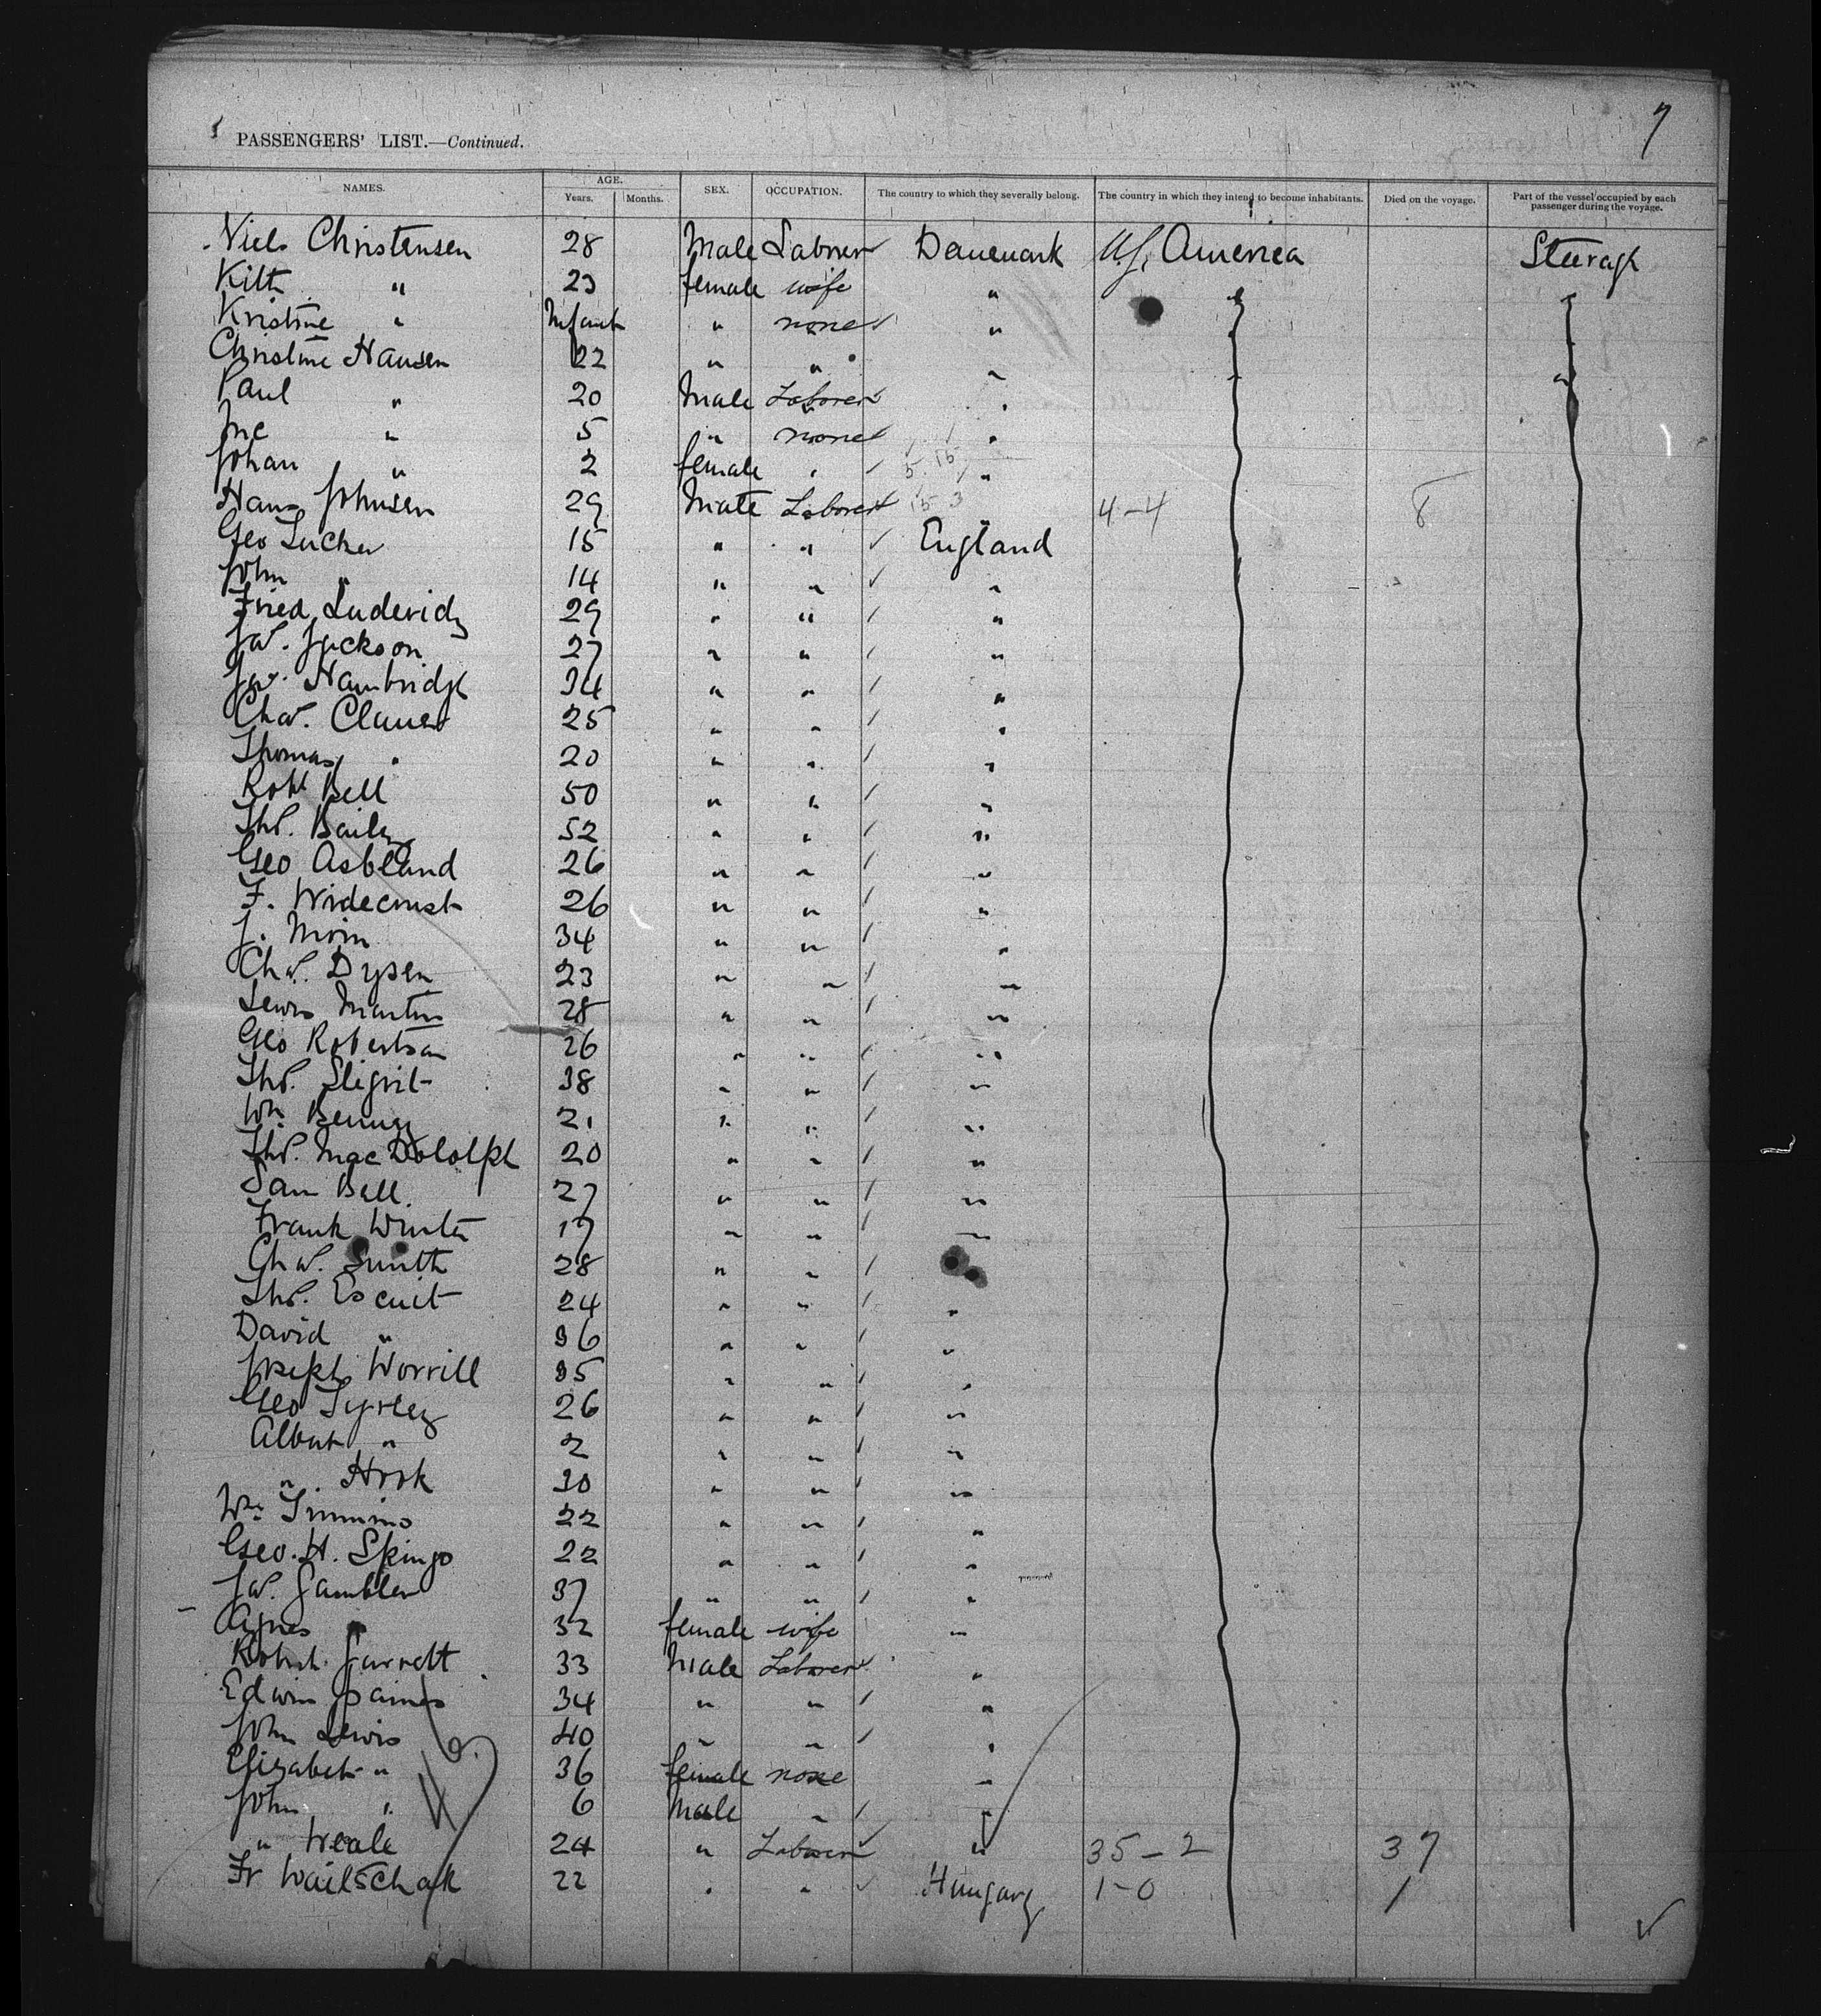 7
PASSENGERS' LIST.—Continued.
NAMES. AGE. Years. Months. SEX. OCCUPATION. The country to which they severally belong. The country in which they intend to become inhabitants. Died on the voyage. Part of the vessel occupied by each passenger during the voyage.
Niels Christensen 28 Male Laborer Danemark U.S. America Steerage
Kilt " 23 female wife "
Kristine " Infant " none "
Christine Hansen 22 " " "
Paul " 20 Male Laborer "
Jne " 5 " none "
Johan " 2 female " "
Hans Johnsen 29 Male Laborer " 4-4 8
Geo Tucker 15 " " England
John " 14 " " "
Fried Luderidz 29 " " "
J W. Jackson 27 " " "
Jw. Hambridge 34 " " "
Chas. Clauer 25 " " "
Thomas " 20 " " "
Robt Bell 50 " " "
Thos. Baily 52 " " "
Geo Asbland 26 " " "
F. Widecrust 26 " " "
J. Moin 34 " " "
Chas. Dysen 23 " " "
Lewis Martin 28 " " "
Geo Robertson 26 " " "
Thos. Sligvit 38 " " "
Wm Benny 21 " " "
Thos. Mac Dololph 20 " " "
Sam Bell 27 " " "
Frank Winter 17 " " "
Chas. Smith 28 " "
Thos. Escuit 24 " " "
David " 36 " " "
Joseph Worrill 35 " " "
Geo Tyrley 26 " " "
Albert " 2 " " "
" Hook 30 " " "
Wm Timmins 22 " " "
Geo. H. Spingo 22 " " "
J W. Gambler 37 " " "
Agnes " 32 female wife "
Robert Garrett 33 Male Laborer "
Edwin Joaines 34 " " "
John Lewis 40 " " "
Elizabeth " 36 female none "
John " 6 Male " "
" Weale 24 " Laborer " 35-2 37
Fr Wailschak 22 " " Hungary 1-0 1